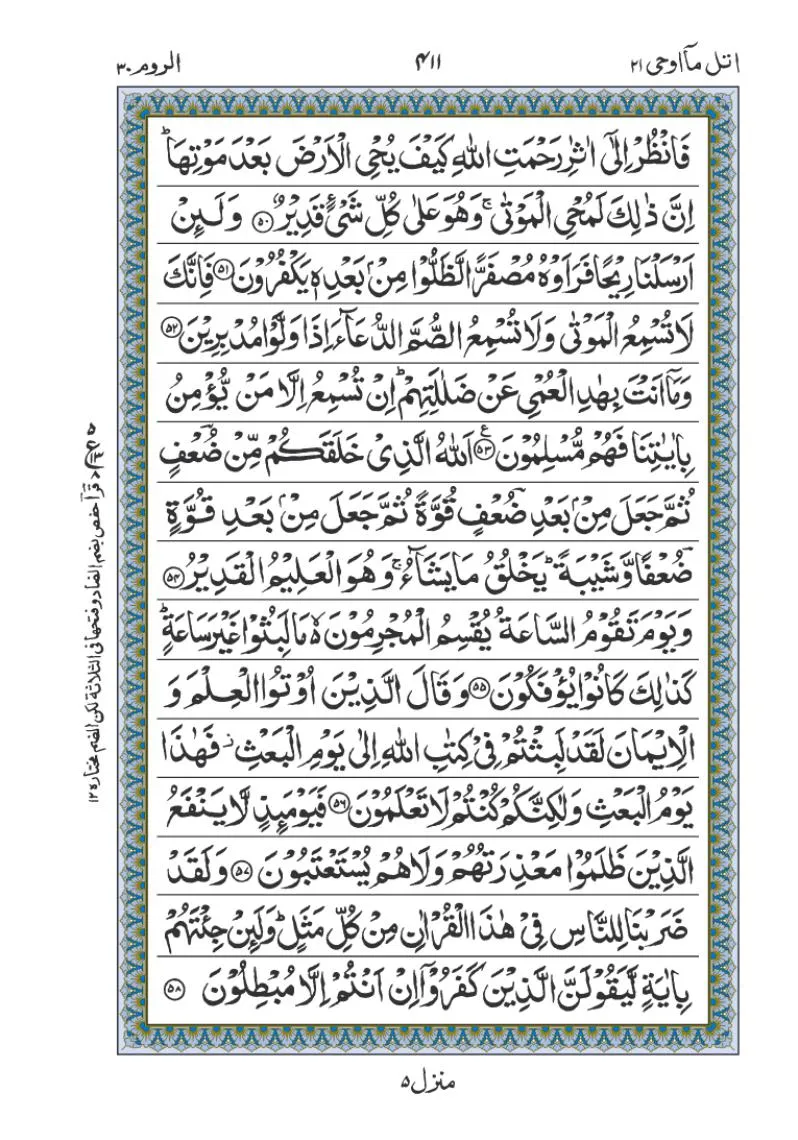 اتل مآ اوحی ۲۱
۴۱۱
الروم ۳۰
فَانْظُرْ اِلٰۤى اٰثٰرِ رَحْمَتِ اللّٰهِ كَیْفَ یُحْیِ الْاَرْضَ بَعْدَ مَوْتِهَاؕ
اِنَّ ذٰلِكَ لَمُحْیِ الْمَوْتٰىۚ وَهُوَ عَلٰى كُلِّ شَیْءٍ قَدِیْرٌ ﴿۵۰﴾ وَلَىِٕنْ
اَرْسَلْنَا رِیْحًا فَرَاَوْهُ مُصْفَرًّا لَّظَلُّوْا مِنْۢ بَعْدِهٖ یَكْفُرُوْنَ ﴿۵۱﴾ فَاِنَّكَ
لَا تُسْمِعُ الْمَوْتٰى وَلَا تُسْمِعُ الصُّمَّ الدُّعَآءَ اِذَا وَلَّوْا مُدْبِرِیْنَ ﴿۵۲﴾
وَمَاۤ اَنْتَ بِهٰدِ الْعُمْیِ عَنْ ضَلٰلَتِهِمْؕ اِنْ تُسْمِعُ اِلَّا مَنْ یُّؤْمِنُ
بِاٰیٰتِنَا فَهُمْ مُّسْلِمُوْنَ ﴿۵۳﴾ۧ اَللّٰهُ الَّذِیْ خَلَقَكُمْ مِّنْ ضُعْفٍ
ثُمَّ جَعَلَ مِنْۢ بَعْدِ ضُعْفٍ قُوَّةً ثُمَّ جَعَلَ مِنْۢ بَعْدِ قُوَّةٍ
ضُعْفًا وَّشَیْبَةًؕ یَخْلُقُ مَا یَشَآءُۚ وَهُوَ الْعَلِیْمُ الْقَدِیْرُ ﴿۵۴﴾
وَیَوْمَ تَقُوْمُ السَّاعَةُ یُقْسِمُ الْمُجْرِمُوْنَ ۙ۬ مَا لَبِثُوْا غَیْرَ سَاعَةٍؕ
كَذٰلِكَ كَانُوْا یُؤْفَكُوْنَ ﴿۵۵﴾ وَقَالَ الَّذِیْنَ اُوْتُوا الْعِلْمَ وَ
الْاِیْمَانَ لَقَدْ لَبِثْتُمْ فِیْ كِتٰبِ اللّٰهِ اِلٰى یَوْمِ الْبَعْثِ ؗ فَهٰذَا
یَوْمُ الْبَعْثِ وَلٰكِنَّكُمْ كُنْتُمْ لَا تَعْلَمُوْنَ ﴿۵۶﴾ فَیَوْمَىِٕذٍ لَّا یَنْفَعُ
الَّذِیْنَ ظَلَمُوْا مَعْذِرَتُهُمْ وَلَا هُمْ یُسْتَعْتَبُوْنَ ﴿۵۷﴾ وَلَقَدْ
ضَرَبْنَا لِلنَّاسِ فِیْ هٰذَا الْقُرْاٰنِ مِنْ كُلِّ مَثَلٍؕ وَلَىِٕنْ جِئْتَهُمْ
بِاٰیَةٍ لَّیَقُوْلَنَّ الَّذِیْنَ كَفَرُوْۤا اِنْ اَنْتُمْ اِلَّا مُبْطِلُوْنَ ﴿۵۸﴾
قرأ حفص بضم الضاد وفتحها فی الثلاثة لكن الضم مختارہ ۱۲
منزل ۵